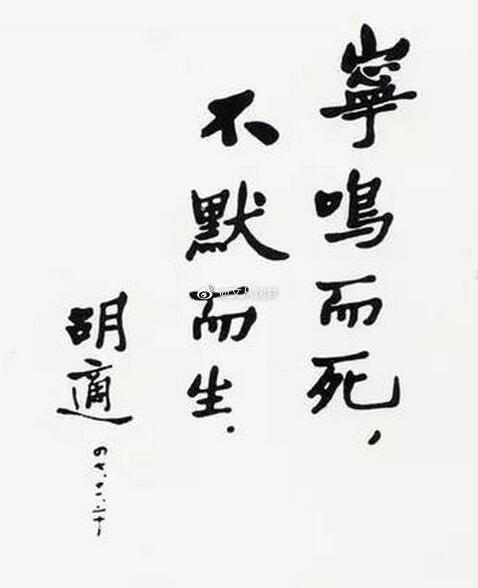 寧鳴而死,
不默而生.
胡適